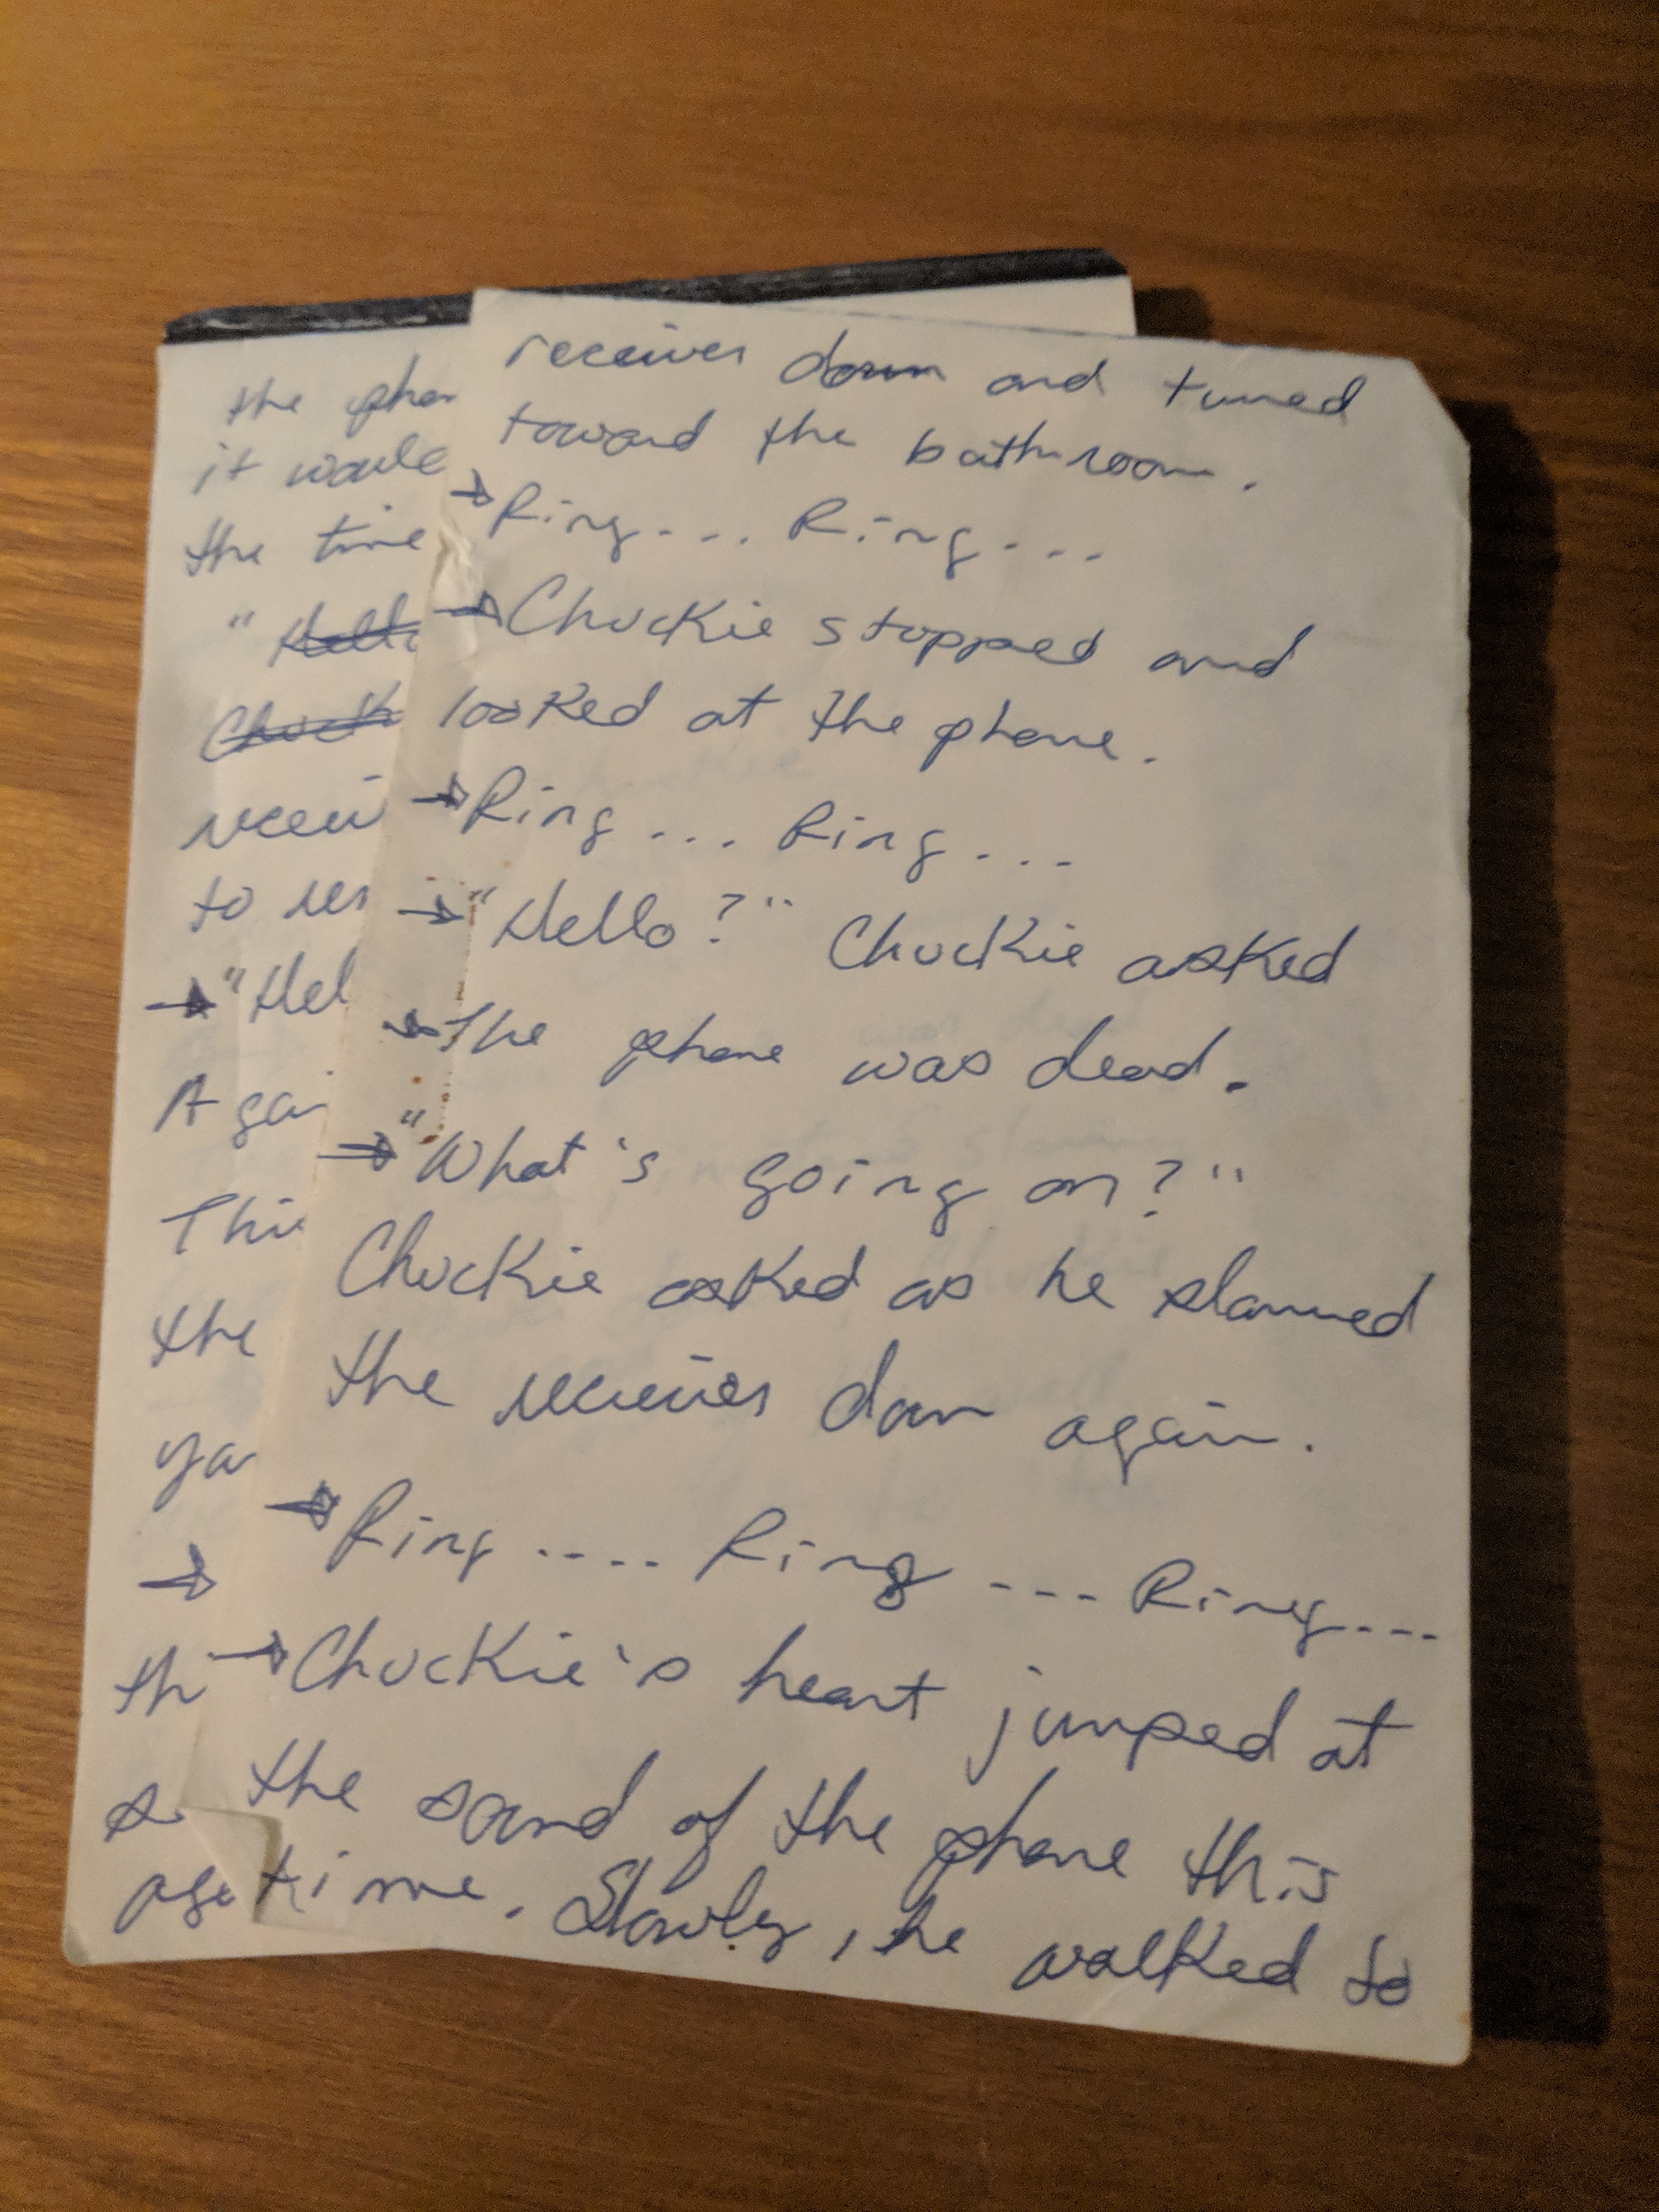 receiver down and turned
toward the bathroom.
→Ring.... Ring...
→Chuckie stopped and
looked at the phone.
→Ring... Ring...
→"Hello?" Chuckie asked
→The phone was dead.
→"What's going on?"
Chuckie asked as he slammed
the receiver down again.
→Ring.... Ring... Ring....
→Chuckie's heart jumped at
the sound of the phone this
time. Slowly, he walked to
the phon
it would
the time
"Hello
Chuck
receiv
to
→"Hel
Agai
This
the
ya
→
th